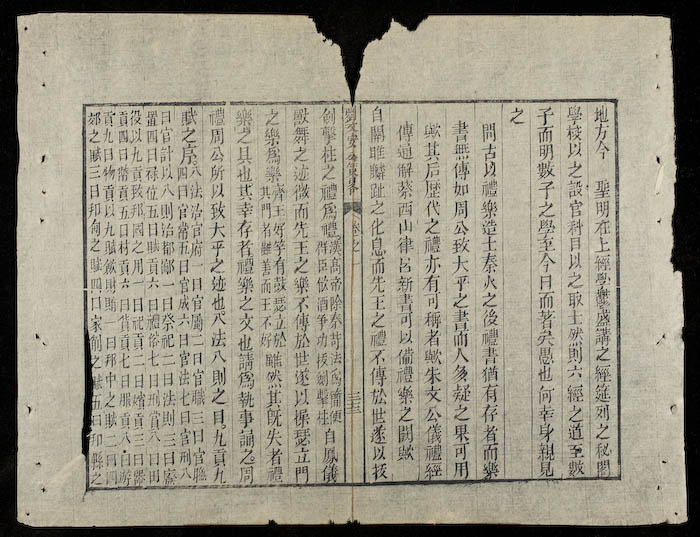 地方今　聖明在上經學鬱盛講之經筵列之秘閣
學校以之設官科目以之取士然則六經之道至數
子而明數子之學至今日而著矣愚也何幸身親見
之
問古以禮樂造士秦火之後禮書猶有存者而樂
書無傳如周公致大平之書而人多疑之果可用
歟其后歷代之禮亦有可稱者歟朱文公儀禮經
傳通解蔡西山律呂新書可以備禮樂之闕歟
自關雎麟趾之化息而先王之禮不傳於世遂以拔
劉文安 策畧 卷之 三十三
劍擊柱之禮爲禮漢高帝除秦苛法爲簡便
群臣飲酒爭功拔劍擊柱自鳳儀
獸舞之迹微而先王之樂不傳於世遂以操瑟立門
之樂爲樂齊王好竽有鼓瑟立於
其門者雖善而王不好雖然其旣失者禮
樂之具也其幸存者禮樂之文也請爲執事誦之周
禮周公所以致大平之迹也八法八則之目九貢九
賦之序八法治官府一曰官屬二曰官職三曰官聯
四曰官常五曰官成六曰官法七曰官刑八
曰官計以八則治都鄙一曰祭祀二曰法則三曰廢
置四曰祿位五曰賦貢六曰禮俗七曰刑賞八曰田
役以九貢致邦國之用一曰祀貢二曰嬪貢三曰器
貢四曰幣貢五曰材貢六曰貨貢七曰服貢八曰斿
貢九曰物貢以九賦歛財賄一曰邦中之賦二曰四
郊之賦三曰邦甸之賦四曰家削之賦五曰邦縣之